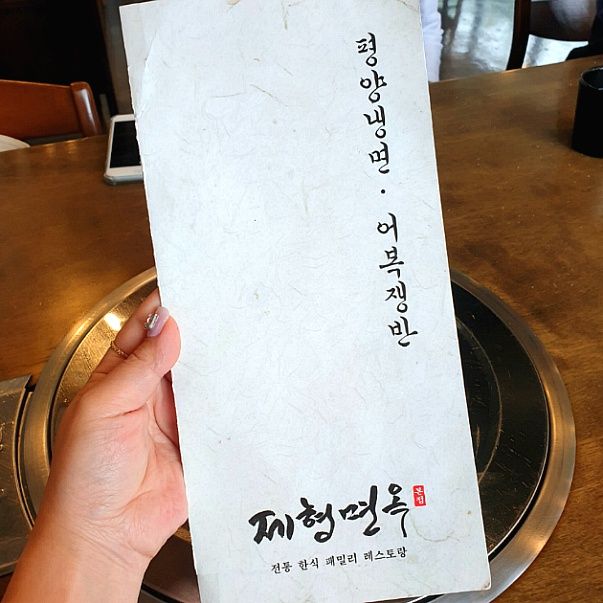 평양냉면 · 어복쟁반
제형면옥 본점
전통 한식 패밀리 레스토랑